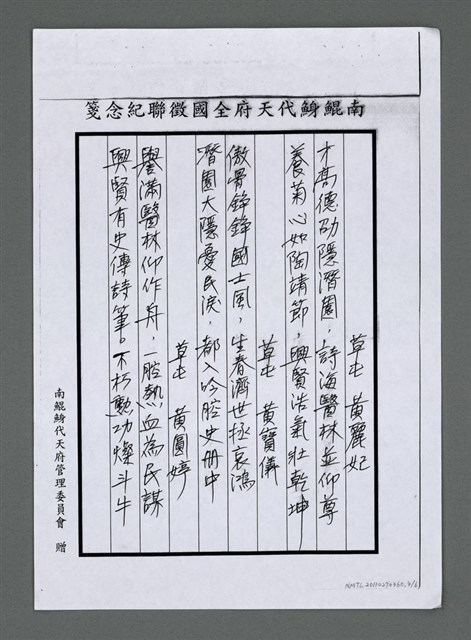 南鯤鯓代天府全國徵聯紀念箋
草屯 黃麗妃
才高德劭隱潛園，詩海醫林並仰尊
養菊心如陶靖節，興賢浩氣壯乾坤
草屯 黃寶儀
傲骨錚錚國士風，生春濟世拯哀鴻
潛園大隱憂民淚，都入吟腔史册中
草屯 黃圓婷
譽滿醫林仰作舟，一腔熱血為民謀
興賢有史傳詩筆。不朽勳功燦斗牛
南鯤鯓代天府管理委員會 贈
NMTL20110274360.4/6